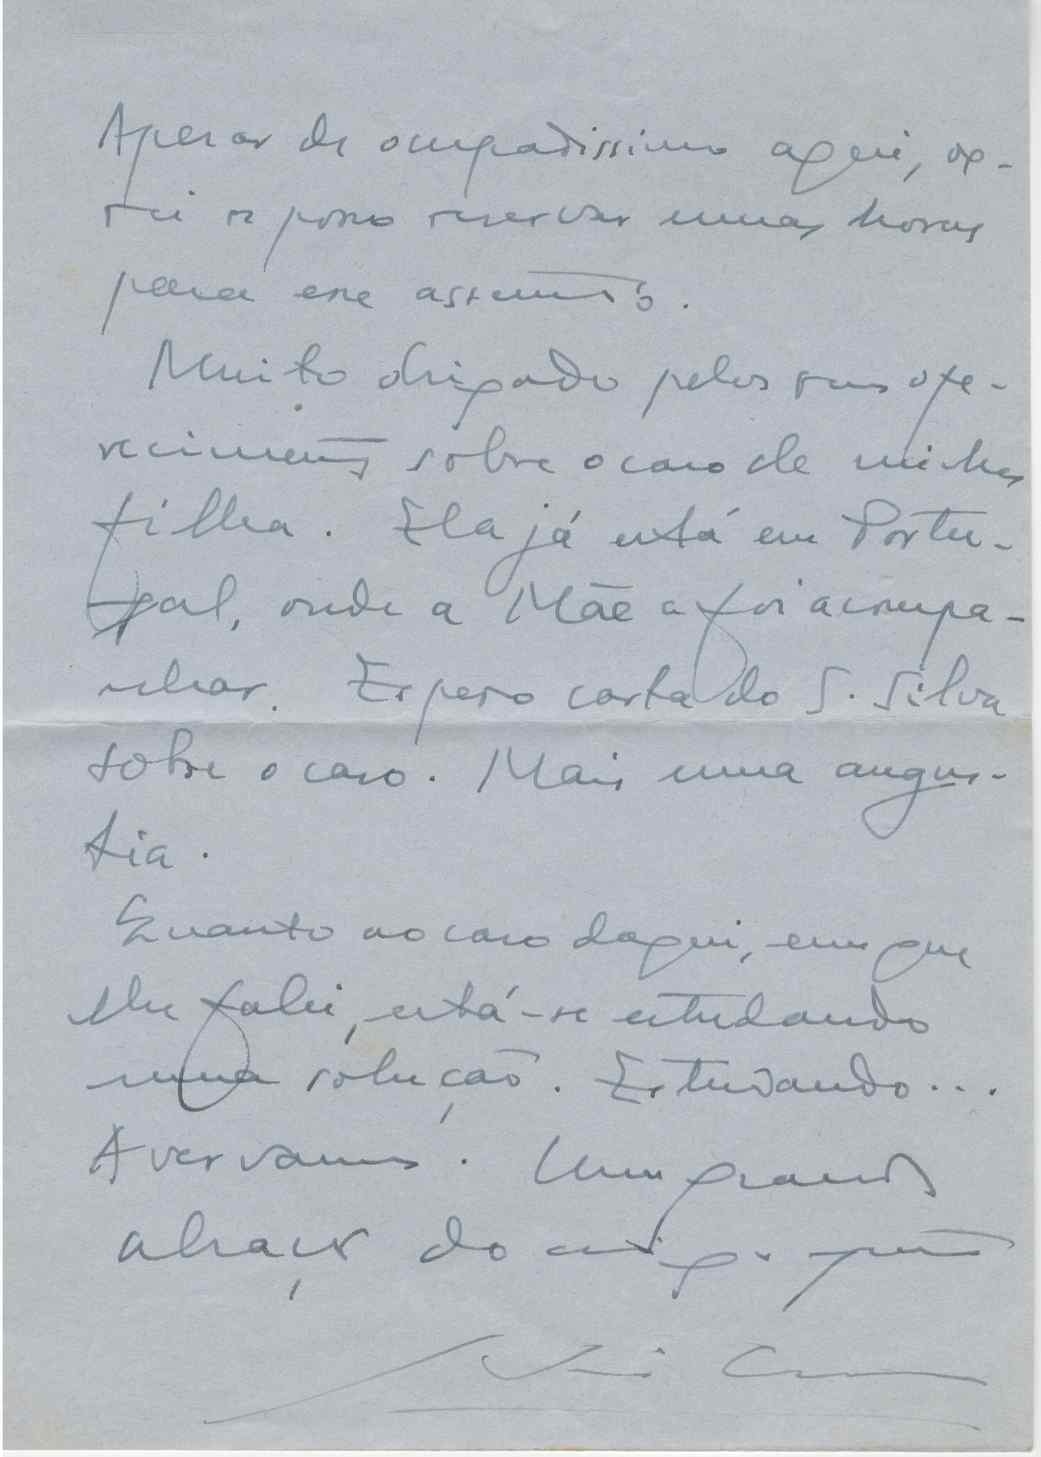 Apesar de ocupadissimo aqui, ve-
rei se posso reservar umas horas
para esse assunto.
Muito obrigado pelos seus ofe-
recimentos sobre o caso de minha
filha. Ela já está em Portu-
gal, onde a Mãe a foi acompa-
nhar. Espero carta do S. Silva
sobre o caso. Mais uma angus-
tia.
Quanto ao caso daqui, em que
lhe falei, está-se estudando
uma solução. Estudando...
A ver vamos. Um grande
abraço do amigo